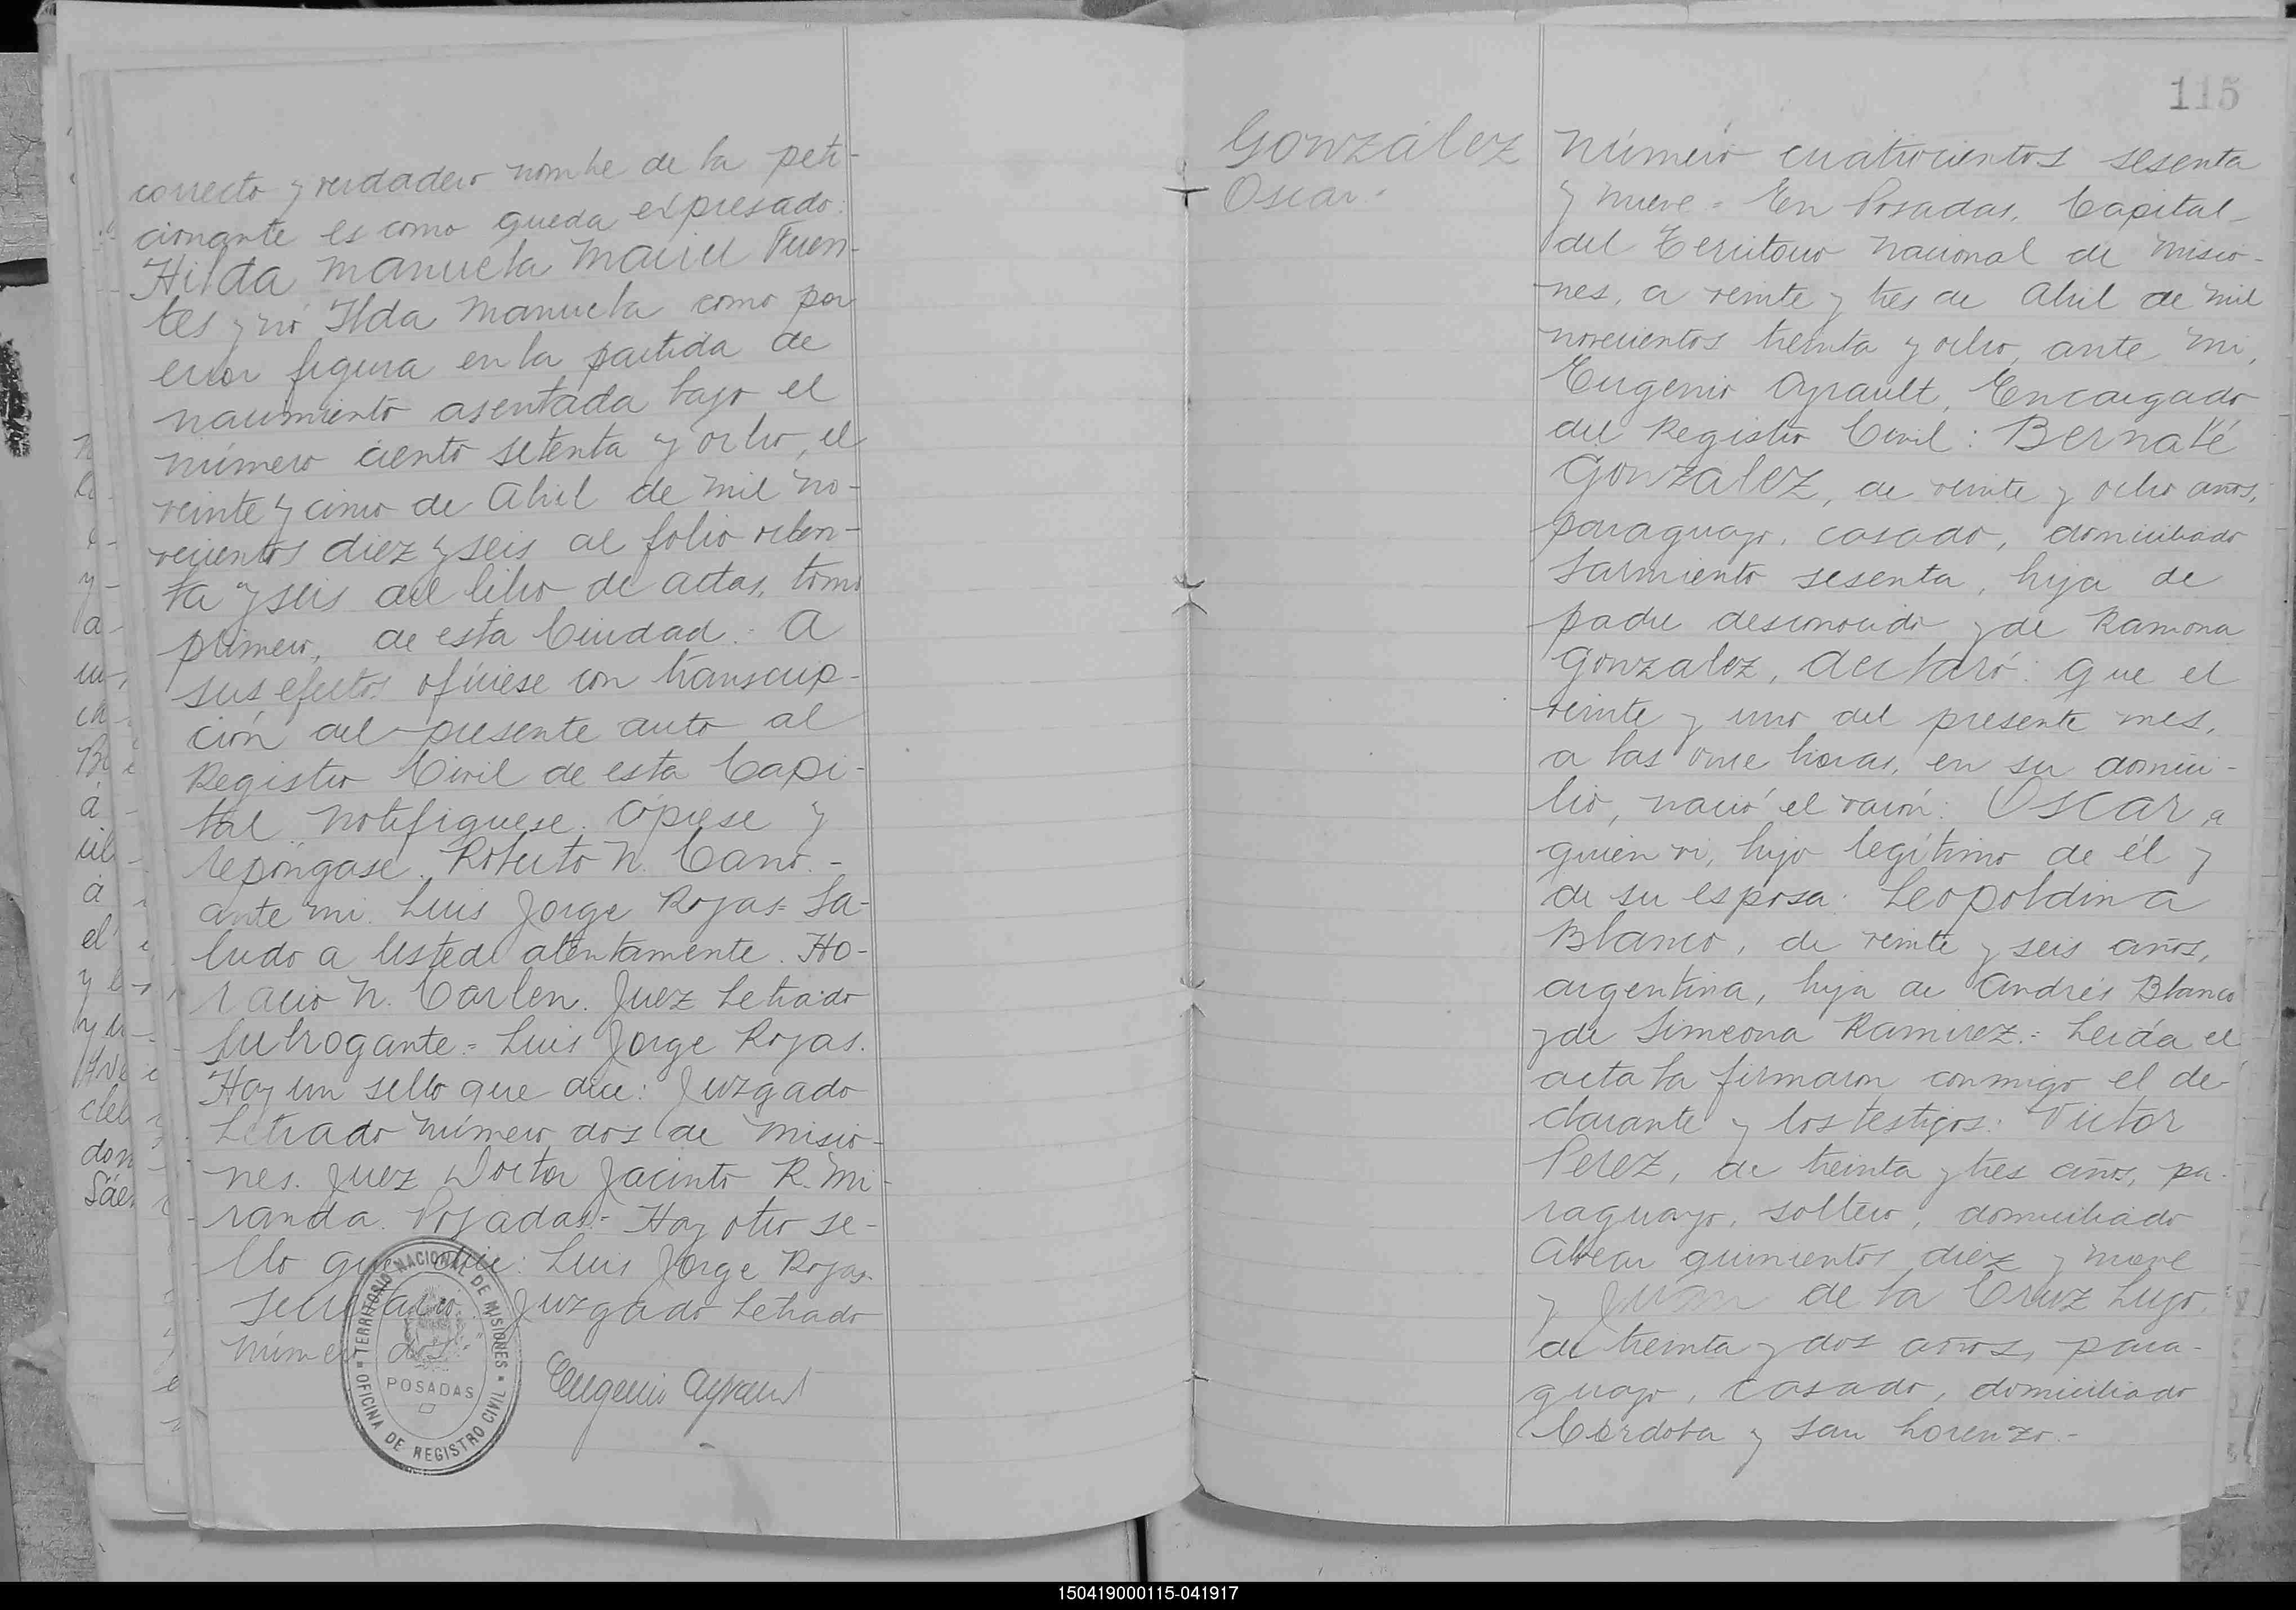 correcto y verdadero nombre de la peti-
cionante es como queda expresado:
Hilda Manuela Mariel Fuen-
tes y nó Ilda Manuela como por
error figura en la partida de
nacimiento asentada bajo el
número ciento setenta y ocho, el
veinte y cinco de Abril de mil no-
vecientos diez y seis al folio ochen-
ta y seis del libro de actas, tomo
primero, de esta Ciudad. A
sus efectos ofíciese con transcrip-
ción del presente auto al
Registro Civil de esta Capi-
tal notifiquese. Cópiese y
repóngase. Roberto N. Cano.-
ante mi. Luis Jorge Rojas= Sa-
ludo a Usted atentamente. Ho-
racio N. Carlen. Juez Letrado
Subrogante.= Luis Jorge Rojas.
Hay un sello que dice: Juzgado
Letrado Número dos de Misio-
nes. Juez Doctor Jacinto R. Mi-
randa. Posadas.= Hay otro se-
llo que dice: Luis Jorge Rojas.
Secretario. Juzgado Letrado
Número dos.-
TERRITORIO NACIONAL DE MISIONES
POSADAS
OFICINA DE REGISTRO CIVIL
Eugenio Ayrault
115
González
Oscar.
Número cuatrocientos sesenta
y nueve = En Posadas, Capital
del Territorio Nacional de Misio-
nes, a veinte y tres de Abril de mil
novecientos treinta y ocho, ante mi,
Eugenio Ayrault, Encargado
del Registro Civil: Bernabé
González, de veinte y ocho años,
paraguayo, casado, domiciliado
Sarmiento sesenta, hijo de
padre desconocido y de Ramona
González, declaró: que el
veinte y uno del presente mes,
a las once horas, en su domici-
lio, nació el varón: Oscar, a
quién vi, hijo legítimo de él y
de su esposa: Leopoldina
Blanco, de veinte y seis años,
argentina, hija de Andrés Blanco
y de Simeona Ramirez.= Leída el
acta la firmaron conmigo el de-
clarante y los testigos: Victor
Perez, de treinta y tres años, pa-
raguayo, soltero, domiciliado
Alvear quinientos diez y nueve
y Juan de la Cruz Lugo,
de treinta y dos años, para-
guayo, casado, domiciliado
Córdoba y San Lorenzo.-
150419000115-041917